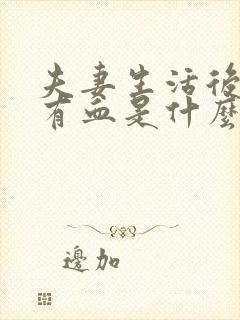 夫妻生活後
有血是什麼
邊加